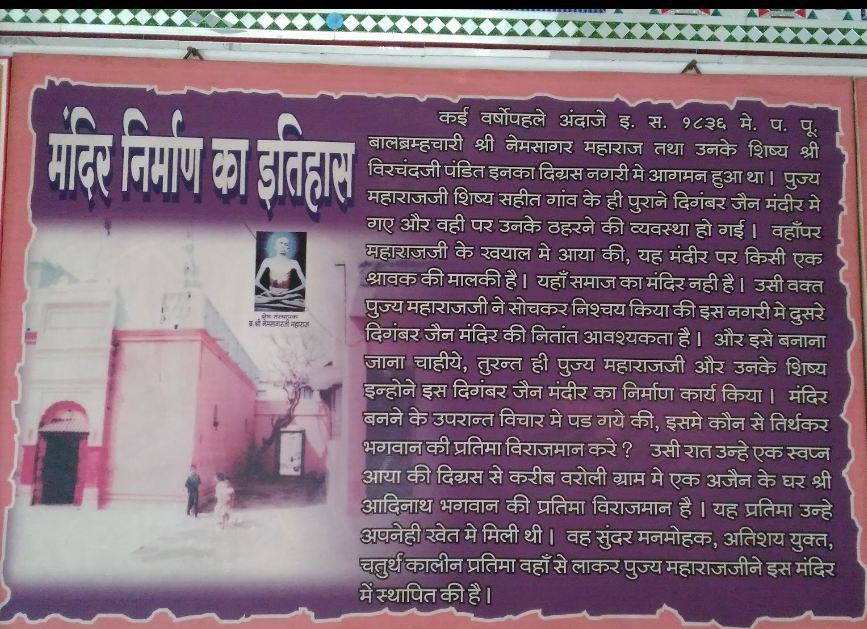 मंदिर निर्माण का इतिहास
क्षेत्र संस्थापक
ब्र. श्री नेमसागरजी महाराज
कई वर्षोपहले अंदाजे इ. स. १८३६ मे. प. पू.
बालब्रम्हचारी श्री नेमसागर महाराज तथा उनके शिष्य श्री
विरचंदजी पंडित इनका दिग्रस नगरी मे आगमन हुआ था | पुज्य
महाराजजी शिष्य सहीत गांव के ही पुराने दिगंबर जैन मंदीर मे
गए और वही पर उनके ठहरने की व्यवस्था हो गई | वहाँपर
महाराजजी के खयाल मे आया की, यह मंदीर पर किसी एक
श्रावक की मालकी है | यहाँ समाज का मंदिर नही है | उसी वक्त
पुज्य महाराजजी ने सोचकर निश्चय किया की इस नगरी मे दुसरे
दिगंबर जैन मंदिर की नितांत आवश्यकता है | और इसे बनाना
जाना चाहीये, तुरन्त ही पुज्य महाराजजी और उनके शिष्य
इन्होने इस दिगंबर जैन मंदीर का निर्माण कार्य किया | मंदिर
बनने के उपरान्त विचार मे पड गये की, इसमे कौन से तिर्थकर
भगवान की प्रतिमा विराजमान करे ? उसी रात उन्हे एक स्वप्न
आया की दिग्रस से करीब वरोली ग्राम मे एक अजैन के घर श्री
आदिनाथ भगवान की प्रतिमा विराजमान है | यह प्रतिमा उन्हे
अपनेही खेत मे मिली थी | वह सुंदर मनमोहक, अतिशय युक्त,
चतुर्थ कालीन प्रतिमा वहाँ से लाकर पुज्य महाराजजीने इस मंदिर
में स्थापित की है |